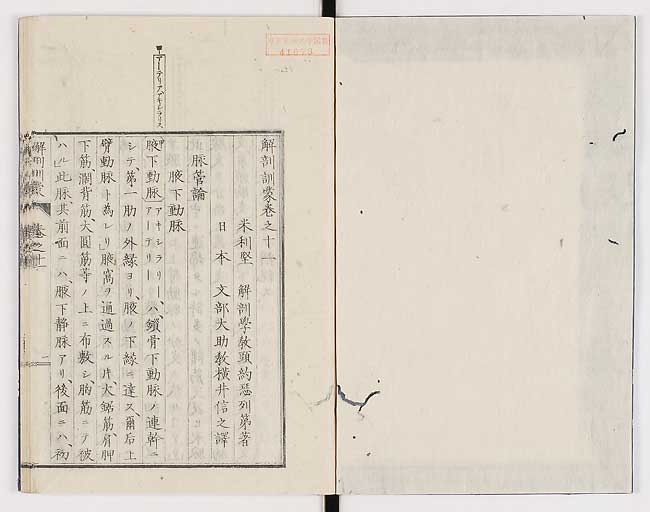 解剖訓蒙巻之十一
米利堅 解剖學教頭約瑟列第著
日本 文部大助教横井信之譯
脉管論
腋下動脉
腋下動脉 アキシラリー、アーテリー ハ、鎖骨下動脉ノ連幹ニ
シテ、第一肋ノ外縁ヨリ、腋ノ下縁ニ達ス、爾后上
臂動脉ト為レリ」腋窩ヲ通過スル片、大鋸筋、肩胛
下筋、濶背筋、大圓筋等ノ上ニ布敷シ、胸筋ニテ被
ハル」此脉、其前面ニハ、腋下静脉アリ後面ニハ、初
アーテリア、アキシラリス
解剖訓蒙 巻之十一
41673